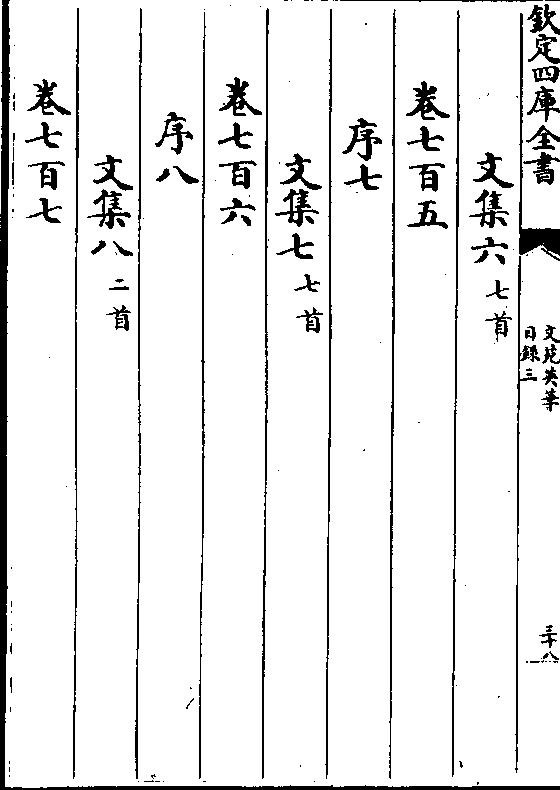 欽定四庫全書
文苑英華
目錄三
三十八
文集六七首
卷七百五
序七
文集七七首
卷七百六
序八
文集八二首
卷七百七